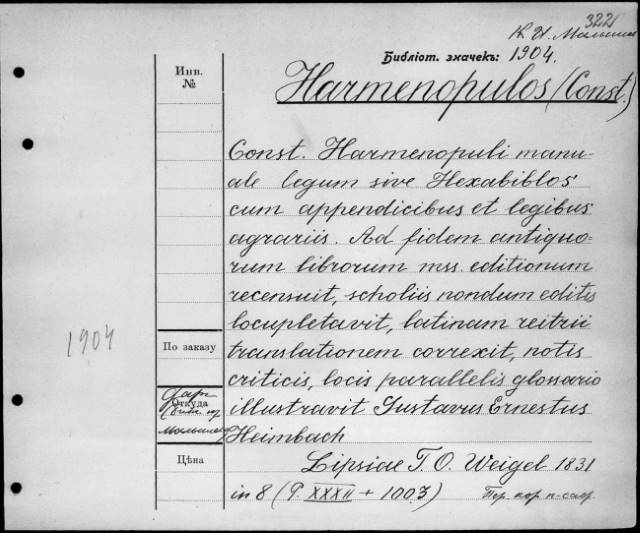 322
К. И. Малышев
Библіот. значекъ: 1904.
Harmenopulos (Const.)
Инв.
№
Const. Harmenopuli manu-
ale legum sive Hexabiblos
cum appendicibus et legibus
agrariis. Ad fidem antiquo-
rum librorum mss. editionum
recensuit, scholiis nondum editis
locupletavit, latinam reitrii
translationem correxit, notis
criticis, locis parallelis glossario
illustravit Gustavus Ernestus
Heimbach
Lipsiae T. O. Weigel 1831
in 8 (P. XXXII + 1003)
1904
По заказу
Откуда
Цѣна